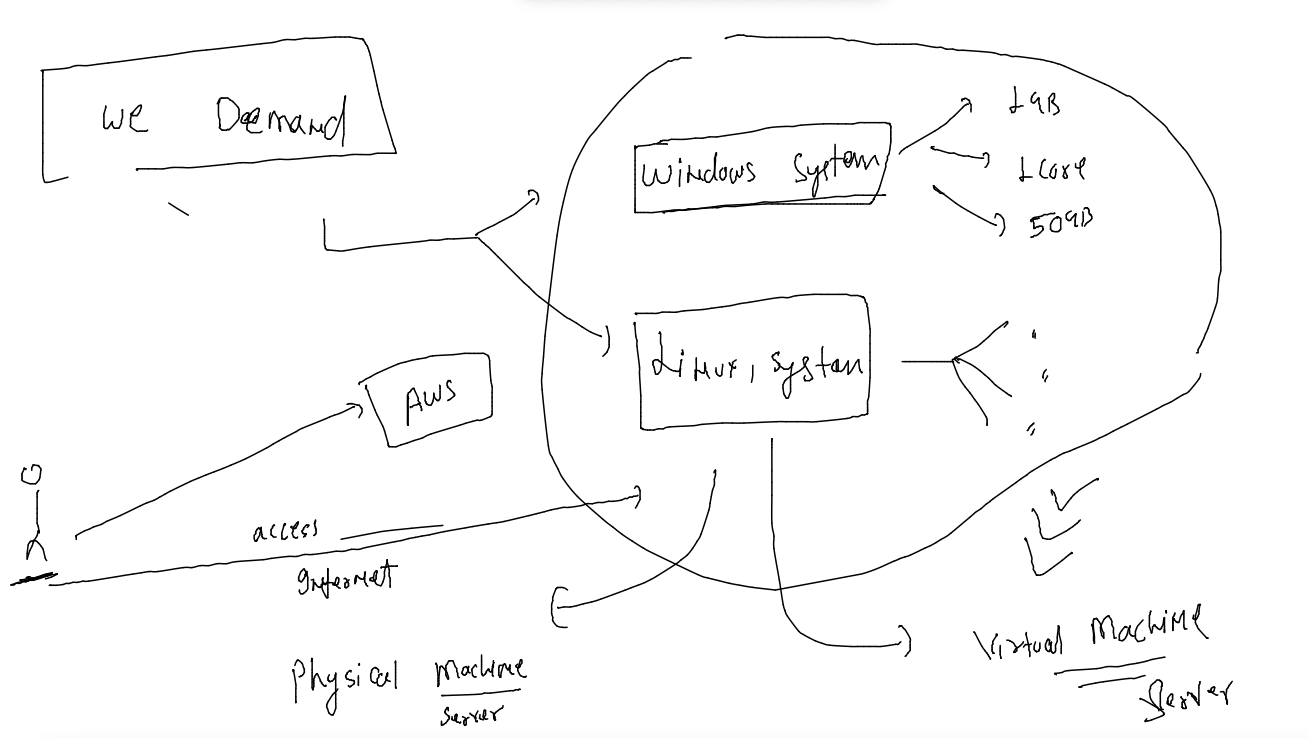 We Demand
Windows System
1GB
1 Core
50GB
Linux, System
"
"
"
AWS
access
Internet
Physical Machine
Server
Virtual Machine
Server